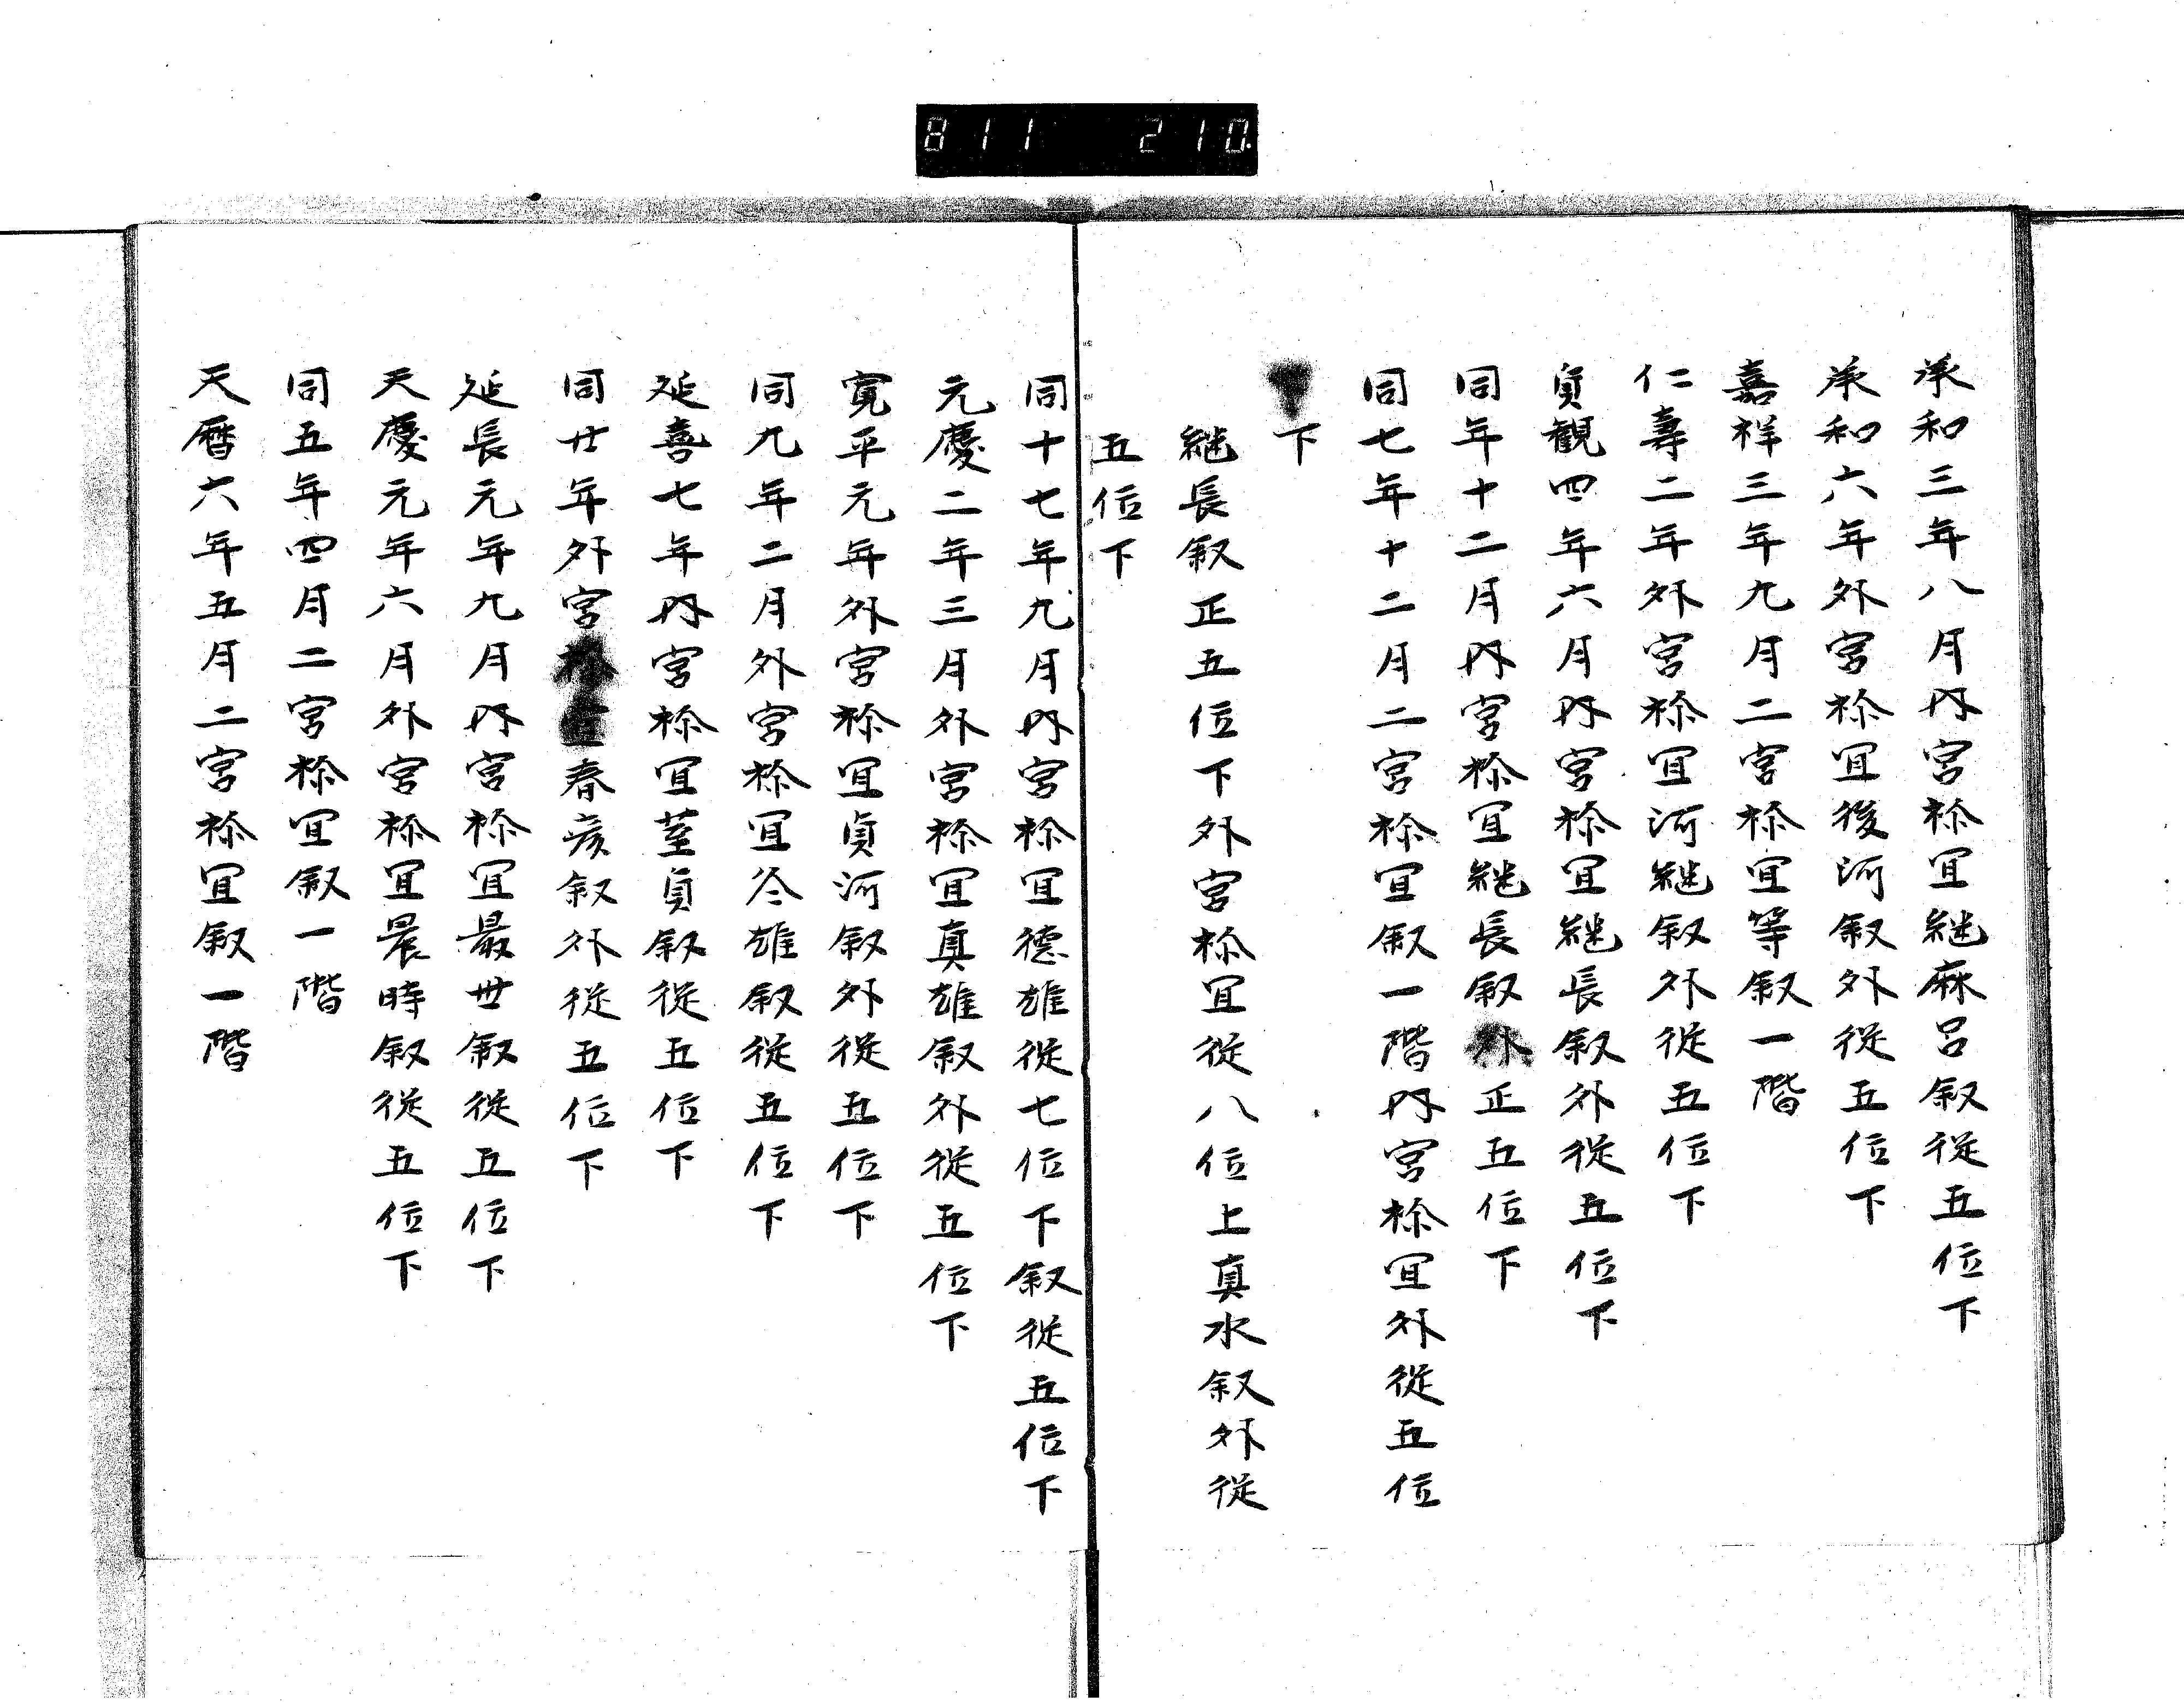 811 210.
承和三年八月内宮祢冝継麻呂叙従五位下
承和六年外宮祢冝後河叙外従五位下
嘉祥三年九月二宮祢冝等叙一階
仁壽二年外宮祢冝河継叙外従五位下
貞観四年六月内宮祢冝継長叙外従五位下
同年十二月内宮祢冝継長叙外正五位下
同七年十二月二宮祢冝叙一階内宮祢冝外従五位
下
継長叙正五位下外宮祢冝従八位上真水叙外従
五位下
同十七年九月内宮祢冝德雄従七位下叙従五位下
元慶二年三月外宮祢冝真雄叙外従五位下
寛平元年外宮祢冝貞河叙外従五位下
同九年二月外宮祢冝冬雄叙従五位下
延喜七年内宮祢冝茎貞叙従五位下
同廿年外宮祢冝春彦叙外従五位下
延長元年九月内宮祢冝最世叙従五位下
天慶元年六月外宮祢冝晨時叙従五位下
同五年四月二宮祢冝叙一階
天暦六年五月二宮祢冝叙一階